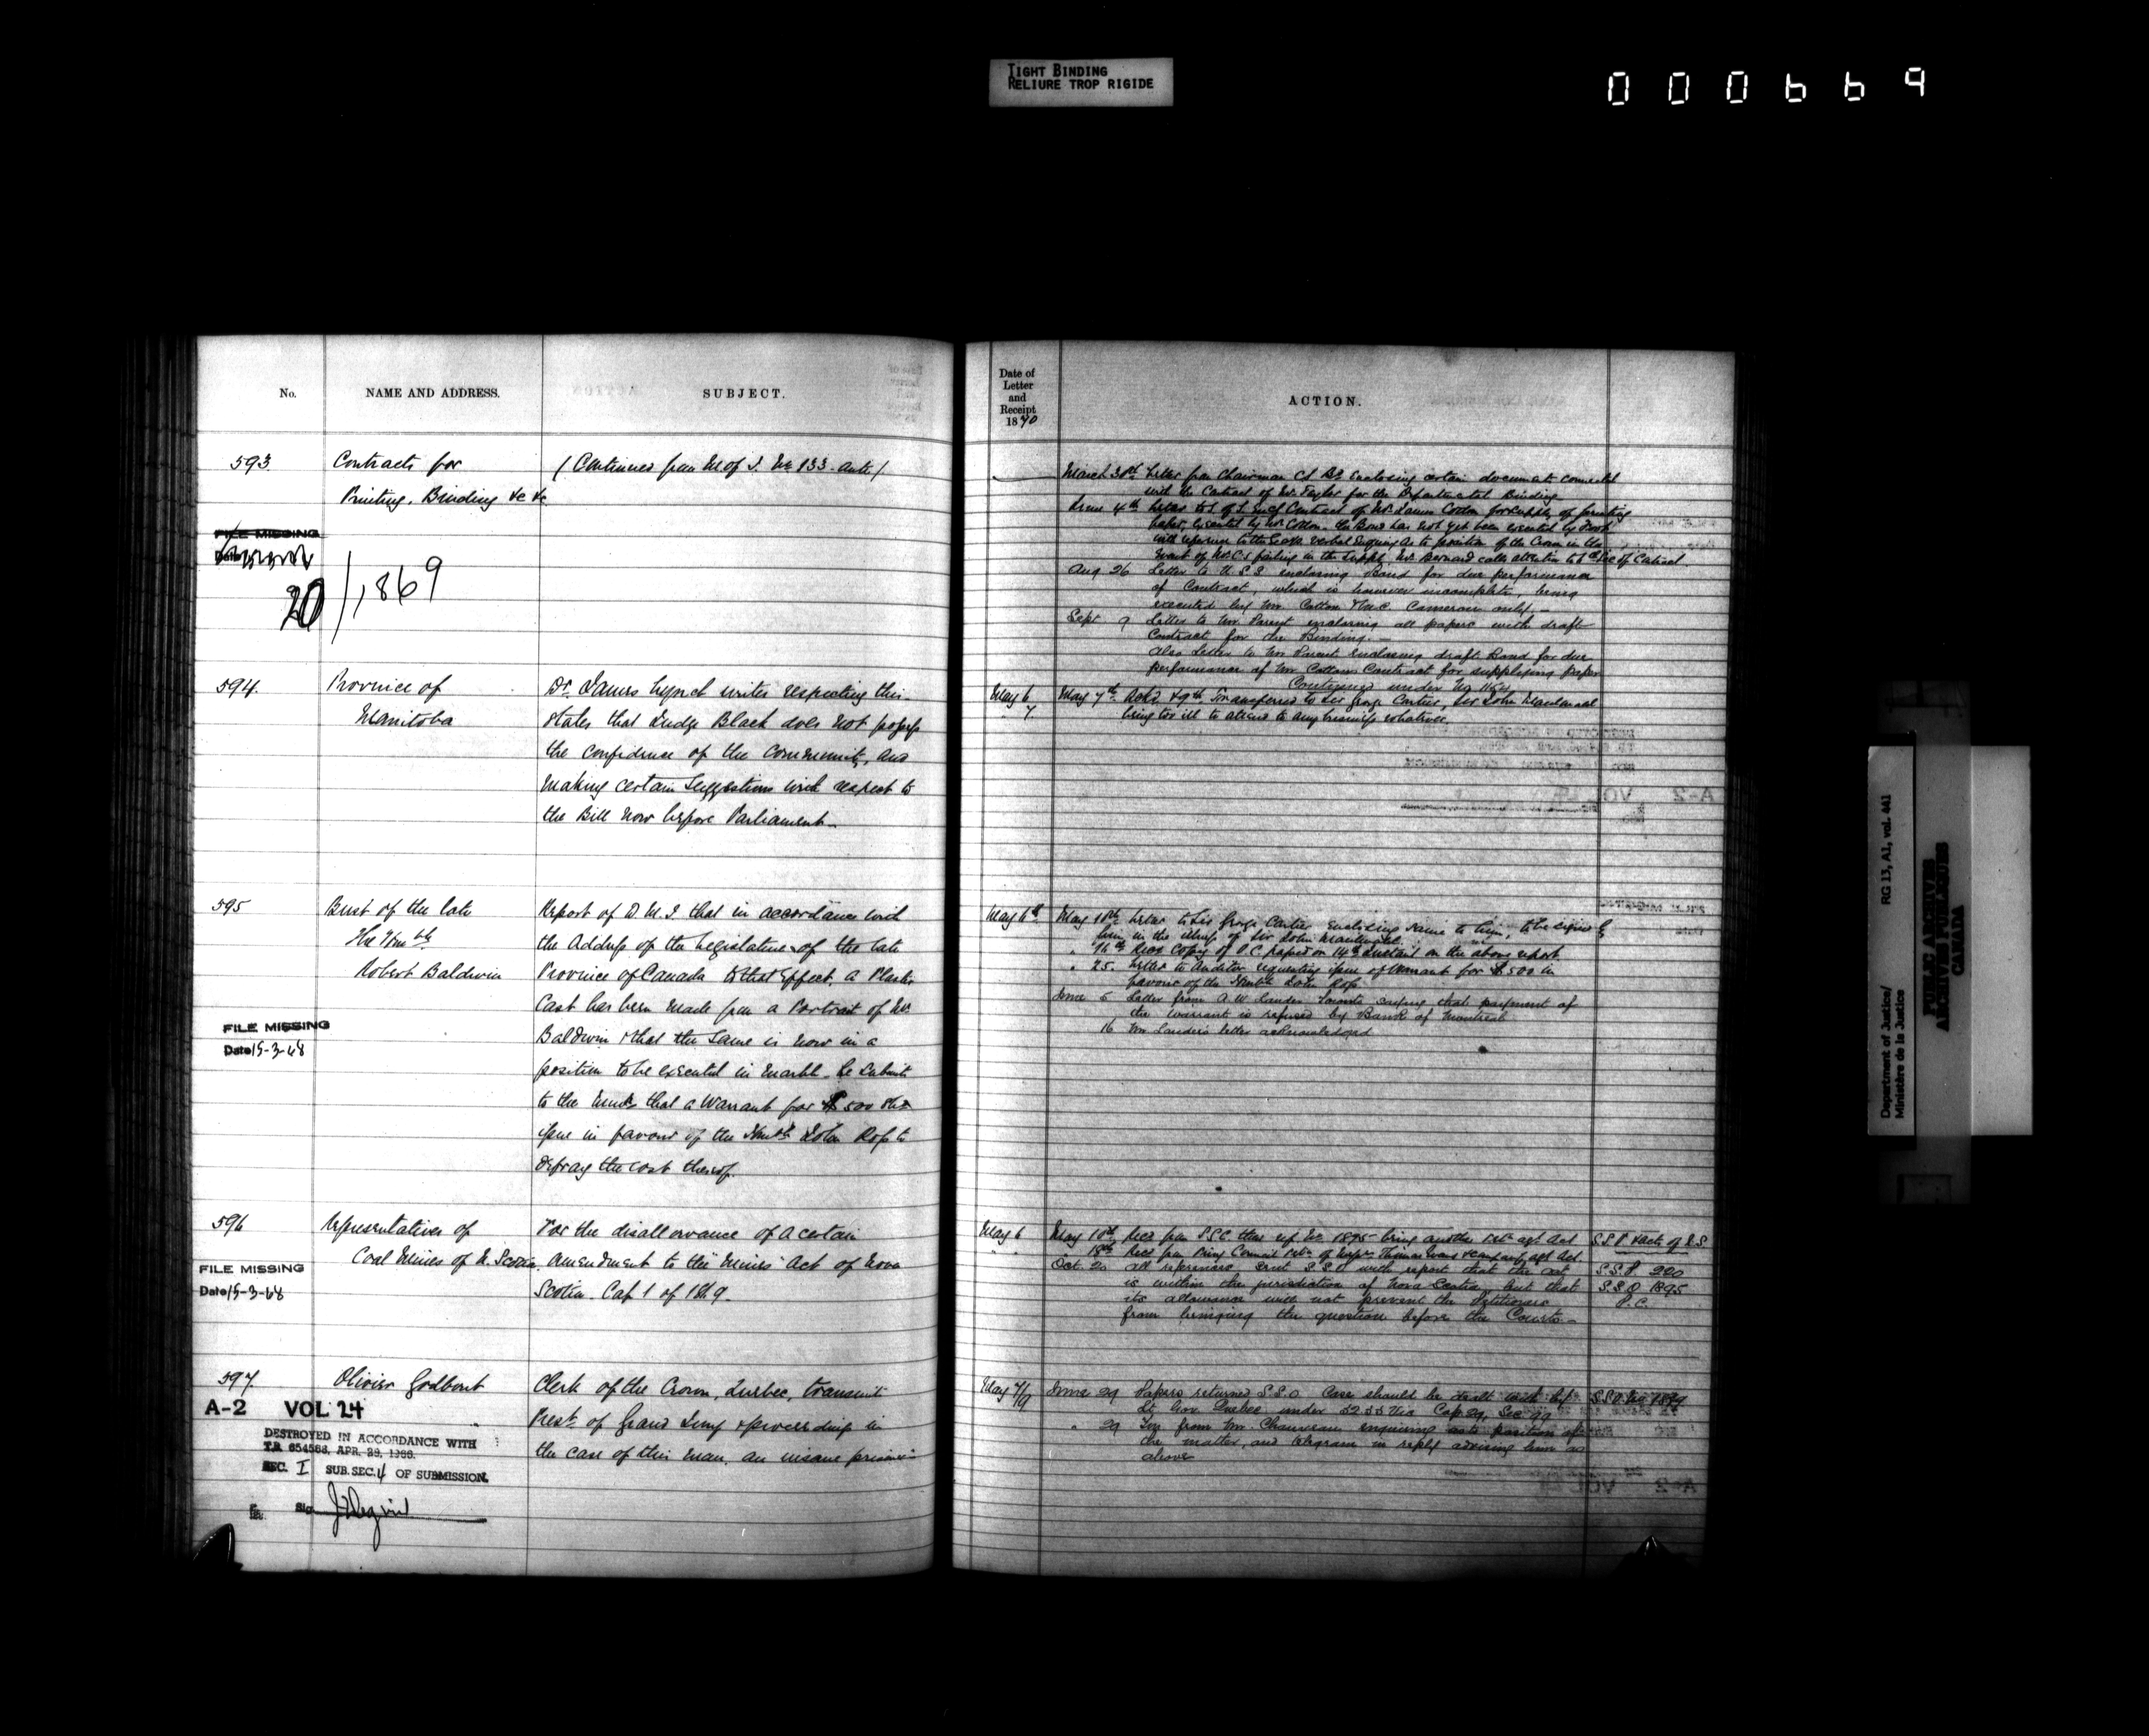 TIGHT BINDING
RELIURE TROP RIGIDE
000669
No.
NAME AND ADDRESS.
SUBJECT.
593.
Contracts for
Printing, Binding &c &c
(Continued from M of J. No 133 ante)
FILE MISSING
Date
20/1869
594.
Province of
Manitoba
Dr. James Lynch writes respecting this
states that Judge Black does not possess
the confidence of the community, and
making certain suggestions with respect to
the Bill now before Parliament.
595
Bust of the late
The Honble
Robert Baldwin
Report of D.M.J. that in accordance with
the Address of the Legislature of the late
Province of Canada to that effect, a Plaster
Cast has been made from a Portrait of Mr.
Baldwin & that the same is now in a
position to be executed in marble. He submits
to the that a Warrant for $500 shd
issue in favour of the Honble John Ross to
defray the cost thereof.
FILE MISSING
Date 15-3-68
596
Representatives of
Coal Mines of N. Scotia.
For the disallowance of a certain
amendment to the "Mines" Act of Nova
Scotia. Cap 1 of 1869.
FILE MISSING
Date 15-3-68
597.
Olivier Godbout
Clerk of the Crown, Quebec, transmit
Prest. of Grand Jury & proceedings in
the case of this man, an insane prisoner
A-2 VOL 24
DESTROYED IN ACCORDANCE WITH
T.B. 654568, APR. 29, 1966.
SEC. I SUB.SEC. 4 OF SUBMISSION.
Sig.
Date of
Letter
and
Receipt
1870
ACTION.
March 30th Letter from Chairman enclosing certain documents connected
with the Contract of Mr. Taylor for the Departmental Binding
June 4th Letter to Contract of Mr. James Cotton for supply of printing
paper, executed by Mr Cotton. The Bond has not yet been executed by
with reference to the verbal Enquiry as to position of the Crown in the
event of Mr C's failing in the supply, Mr Bernard calls attention to of Contract
Aug 26 Letter to U.S.S enclosing Bond for due performance
of Contract, which is however incomplete, being
executed by Mr. Cotton & M.C. Cameron only.—
Sept 9 Letter to Mr. Parent enclosing all papers with draft
Contract for the Binding.—
Also Letter to Mr Parent enclosing draft Bond for due
performance of Mr Cotton Contract for supplying paper
Continued under No
May 6
" 7.
May 7th Ackd & 9th Transferred to Sir George Cartier, Sir John Macdonald
being too ill to attend to any business whatever.
May 6th
May 10th Letter to Sir George Cartier enclosing same to him, to be signed by
him in the illness of Sir John Macdonald.
" 16th Recd Copy of O.C. passed on 14th Instant on the above report
" 25. Letter to Auditor requesting issue of Warrant for $500 in
favour of the Honble John Ross
June 5 Letter from A.W. Lauder Toronto saying that payment of
the warrant is refused by Bank of Montreal
16 Mr Lauder's letter acknowledged
May 6
May 10th Recd from S.S.C. their ref No 1895 being another Petn agt Act
" 18th Recd from Privy Council Petn of Messrs Thomas Evans & company agt Act.
Oct. 20 All references sent S.S.O with report that the act
is within the jurisdiction of Nova Scotia but that
its allowance will not prevent the Petitioners
from bringing the question before the Courts.
S.S.P. & acts of N.S.
S.S.P 220
S.S.O 1895
P.C.
May 7/9
June 29 Papers returned S.S.O. Case should be dealt with by
Lt. Gov. Quebec under 32 33 Vic Cap 29, Sec 99
" 29 from Mr Chauveau enquiring as to position of
the matter, and telegram in reply advising him as
above
S.S.O. No 1899
Department of Justice/
Ministère de la Justice
RG 13, A1, vol. 441
PUBLIC ARCHIVES
ARCHIVES PUBLIQUES
CANADA